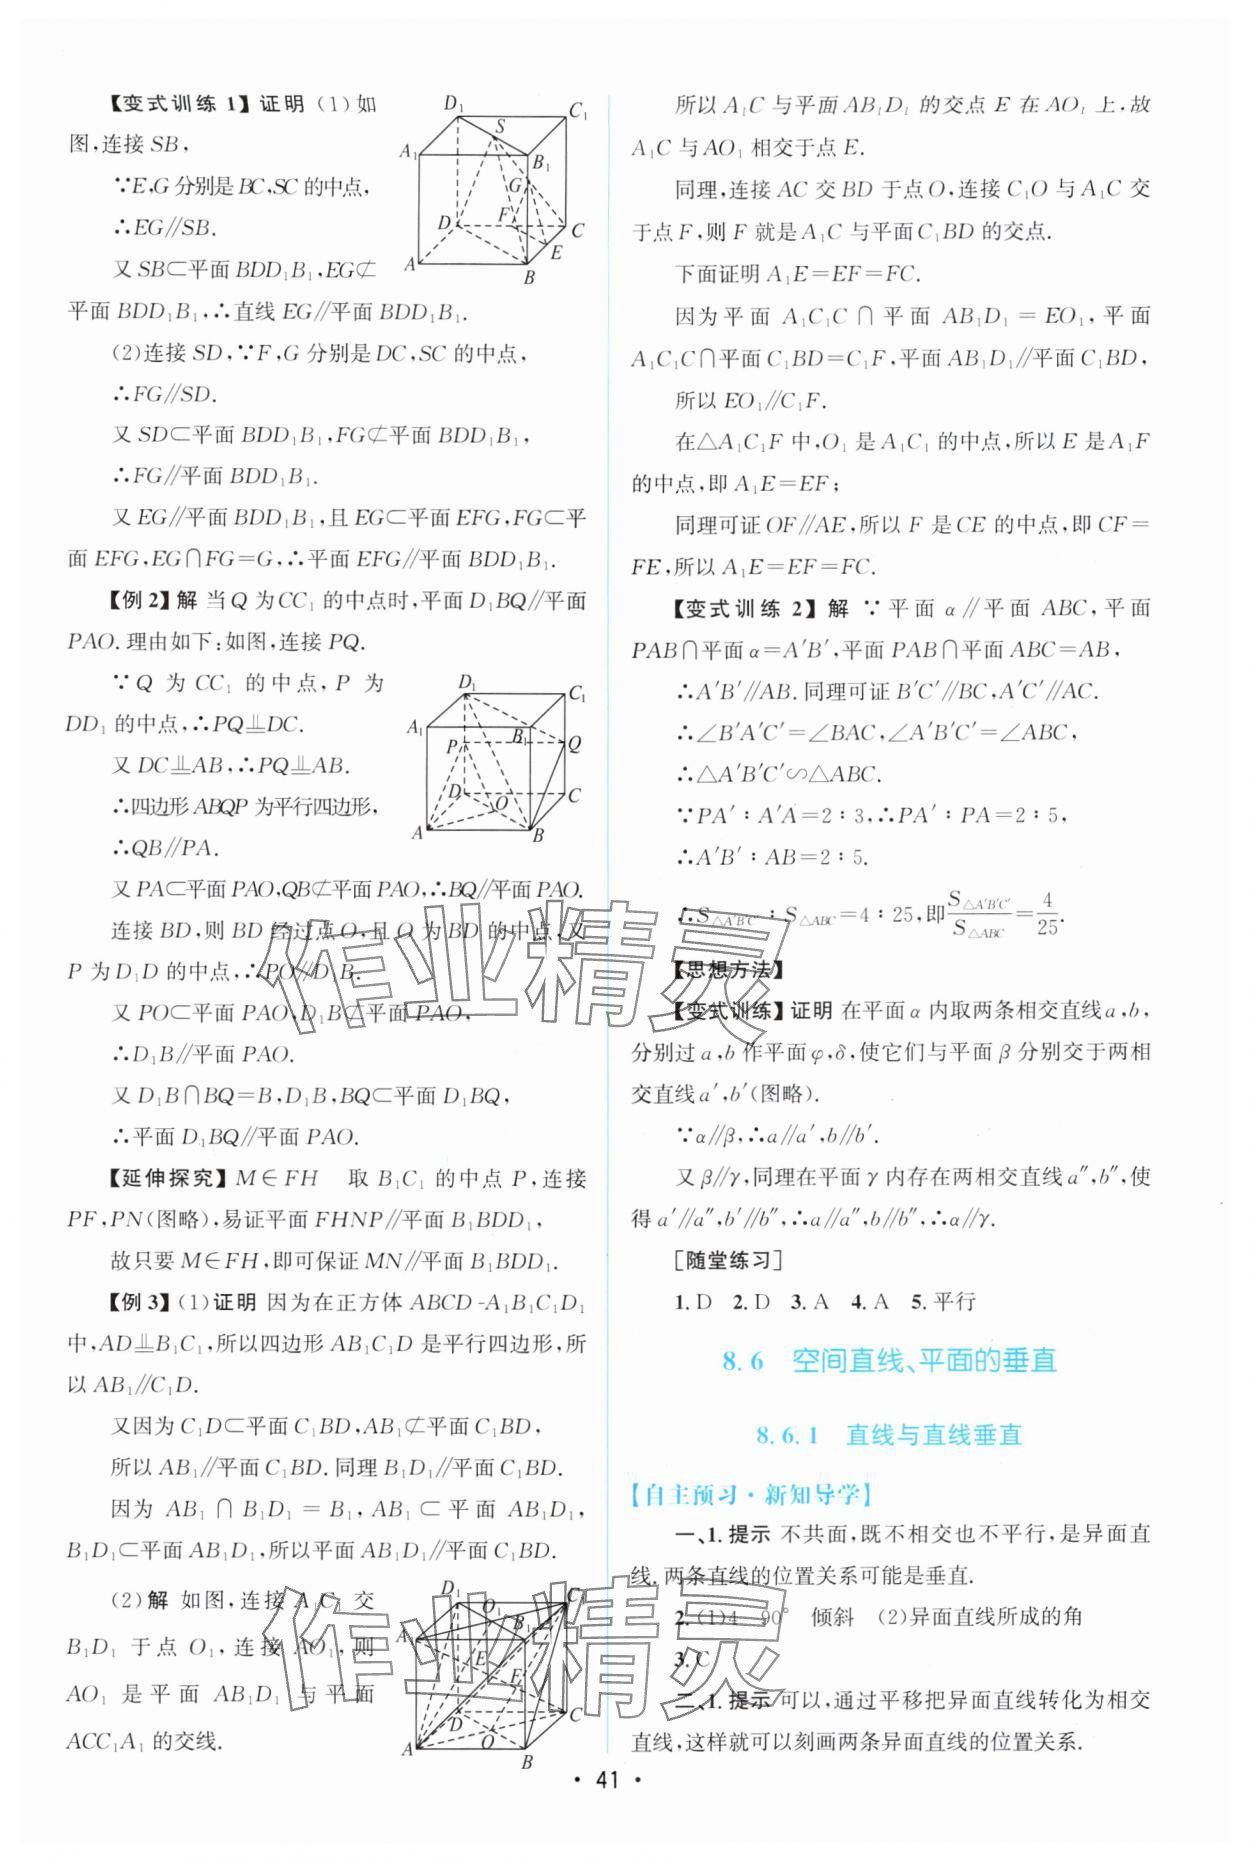 【变式训练 1】证明 (1)如
图,连接 SB,
∵E,G 分别是 BC,SC 的中点,
∴EG∥SB.
又 SB⊂平面 BDD₁B₁,EG⊄
平面 BDD₁B₁,∴直线 EG∥平面 BDD₁B₁.
(2)连接 SD,∵F,G 分别是 DC,SC 的中点,
∴FG∥SD.
又 SD⊂平面 BDD₁B₁,FG⊄平面 BDD₁B₁,
∴FG∥平面 BDD₁B₁.
又 EG∥平面 BDD₁B₁,且 EG⊂平面 EFG,FG⊂平
面 EFG,EG∩FG=G,∴平面 EFG∥平面 BDD₁B₁.
【例 2】解 当 Q 为 CC₁ 的中点时,平面 D₁BQ∥平面
PAO.理由如下:如图,连接 PQ.
∵Q 为 CC₁ 的中点,P 为
DD₁ 的中点,∴PQ⊥∥DC.
又 DC⊥∥AB,∴PQ⊥∥AB.
∴四边形 ABQP 为平行四边形,
∴QB∥PA.
又 PA⊂平面 PAO,QB⊄平面 PAO,∴BQ∥平面 PAO.
连接 BD,则 BD 经过点 O,且 O 为 BD 的中点,又
P 为 D₁D 的中点,∴PO∥D₁B.
又 PO⊂平面 PAO,D₁B⊄平面 PAO,
∴D₁B∥平面 PAO.
又 D₁B∩BQ=B,D₁B,BQ⊂平面 D₁BQ,
∴平面 D₁BQ∥平面 PAO.
【延伸探究】M∈FH 取 B₁C₁ 的中点 P,连接
PF,PN(图略),易证平面 FHNP∥平面 B₁BDD₁,
故只要 M∈FH,即可保证 MN∥平面 B₁BDD₁.
【例 3】(1)证明 因为在正方体 ABCD-A₁B₁C₁D₁
中,AD⊥∥B₁C₁,所以四边形 AB₁C₁D 是平行四边形,所
以 AB₁∥C₁D.
又因为 C₁D⊂平面 C₁BD,AB₁⊄平面 C₁BD,
所以 AB₁∥平面 C₁BD.同理 B₁D₁∥平面 C₁BD.
因为 AB₁∩B₁D₁=B₁,AB₁⊂平面 AB₁D₁,
B₁D₁⊂平面 AB₁D₁,所以平面 AB₁D₁∥平面 C₁BD.
(2)解 如图,连接 A₁C₁ 交
B₁D₁ 于点 O₁,连接 AO₁,则
AO₁ 是平面 AB₁D₁ 与平面
ACC₁A₁ 的交线.
所以 A₁C 与平面 AB₁D₁ 的交点 E 在 AO₁ 上,故
A₁C 与 AO₁ 相交于点 E.
同理,连接 AC 交 BD 于点 O,连接 C₁O 与 A₁C 交
于点 F,则 F 就是 A₁C 与平面 C₁BD 的交点.
下面证明 A₁E=EF=FC.
因为平面 A₁C₁C∩平面 AB₁D₁=EO₁,平面
A₁C₁C∩平面 C₁BD=C₁F,平面 AB₁D₁∥平面 C₁BD,
所以 EO₁∥C₁F.
在△A₁C₁F 中,O₁ 是 A₁C₁ 的中点,所以 E 是 A₁F
的中点,即 A₁E=EF;
同理可证 OF∥AE,所以 F 是 CE 的中点,即 CF=
FE,所以 A₁E=EF=FC.
【变式训练 2】解 ∵平面 α∥平面 ABC,平面
PAB∩平面 α=A′B′,平面 PAB∩平面 ABC=AB,
∴A′B′∥AB.同理可证 B′C′∥BC,A′C′∥AC.
∴∠B′A′C′=∠BAC,∠A′B′C′=∠ABC,
∴△A′B′C′∽△ABC.
∵PA′∶A′A=2∶3,∴PA′∶PA=2∶5,
∴A′B′∶AB=2∶5.
∴S△A′B′C′∶S△ABC=4∶25,即S△A′B′C′/S△ABC=4/25.
【思想方法】
【变式训练】证明 在平面 α 内取两条相交直线 a,b,
分别过 a,b 作平面 φ,δ,使它们与平面 β 分别交于两相
交直线 a′,b′(图略).
∵α∥β,∴a∥a′,b∥b′.
又 β∥γ,同理在平面 γ 内存在两相交直线 a″,b″,使
得 a′∥a″,b′∥b″,∴a∥a″,b∥b″,∴α∥γ.
[随堂练习]
1.D 2.D 3.A 4.A 5.平行
8.6 空间直线、平面的垂直
8.6.1 直线与直线垂直
【自主预习·新知导学】
一、1.提示 不共面,既不相交也不平行,是异面直
线.两条直线的位置关系可能是垂直.
2.(1)4 90° 倾斜 (2)异面直线所成的角
3.C
二、1.提示 可以,通过平移把异面直线转化为相交
直线,这样就可以刻画两条异面直线的位置关系.
· 41 ·
D₁ C₁ S A₁ B₁ G D F C E A B
D₁ C₁ A₁ B₁ P Q D C O A B
D₁ O₁ C₁ A₁ B₁ E F D C O A B
作业精灵
作业精灵